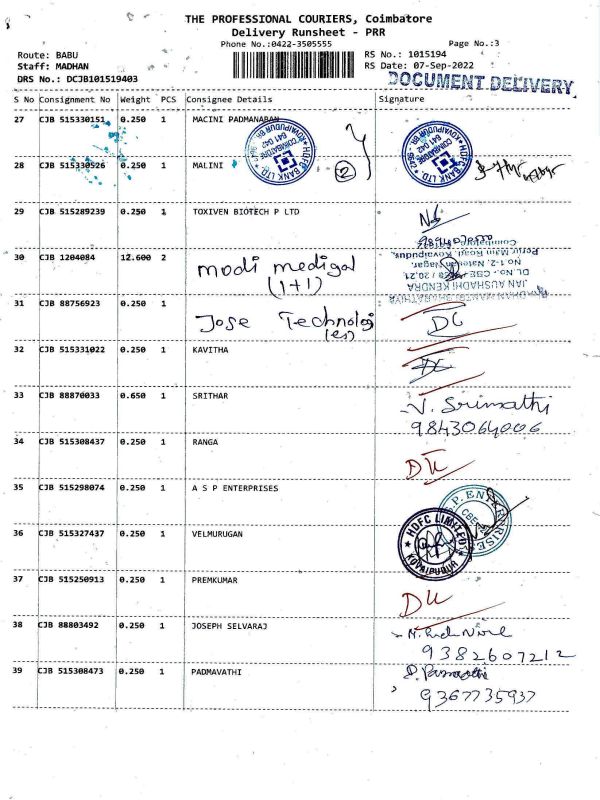 THE PROFESSIONAL COURIERS, Coimbatore
Delivery Runsheet - PRR
Phone No.:0422-3505555
Page No.:3
Route: BABU
RS No.: 1015194
Staff: MADHAN
RS Date: 07-Sep-2022
DRS No.: DCJB101519403
DOCUMENT DELIVERY
S No Consignment No Weight PCS Consignee Details Signature
27 CJB 515330151 0.250 1 MACINI PADMANABAN
HDFC BANK LTD.
KOVAIPUDUR BR.
COIMBATORE
641 042
HDFC BANK LTD.
KOVAIPUDUR BR.
COIMBATORE
641 042
28 CJB 515330526 0.250 1 MALINI
2
29 CJB 515289239 0.250 1 TOXIVEN BIOTECH P LTD
30 CJB 1204084 12.600 2 modi medigal
(1+1)
JAN AUSHADHI KENDRA
Perur Main Road, Kovaipudur,
Coimbatore
31 CJB 88756923 0.250 1 Jose Technologi
(es)
DL
32 CJB 515331022 0.250 1 KAVITHA
33 CJB 88870033 0.650 1 SRITHAR
V. Srimathi
9843064006
34 CJB 515308437 0.250 1 RANGA
DL
35 CJB 515298074 0.250 1 A S P ENTERPRISES
36 CJB 515327437 0.250 1 VELMURUGAN
HDFC LIMITED
KOVAIPUDUR
37 CJB 515250913 0.250 1 PREMKUMAR
DL
38 CJB 88803492 0.250 1 JOSEPH SELVARAJ
9382607212
39 CJB 515308473 0.250 1 PADMAVATHI
9367735937